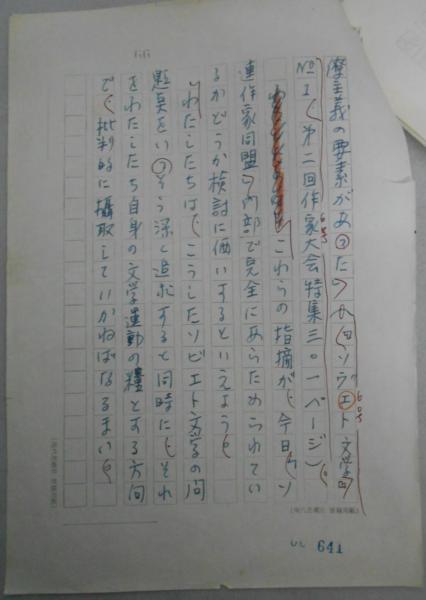 摩主義の要素があったのか(『ソヴエト文学』
No 1、第二回作家大会特集三〇一ページ)。
これらの指摘が、今日、ソ
連作家同盟の内部で完全にあらためられてい
るかどうか検討に価いするといえよう。
わたしたちは、こうしたソビエト文学の問
題点をいっそう深く追求すると同時に、それ
をわたしたち自身の文学運動の糧とする方向
で、批判的に摂取していかねばなるまい。
641